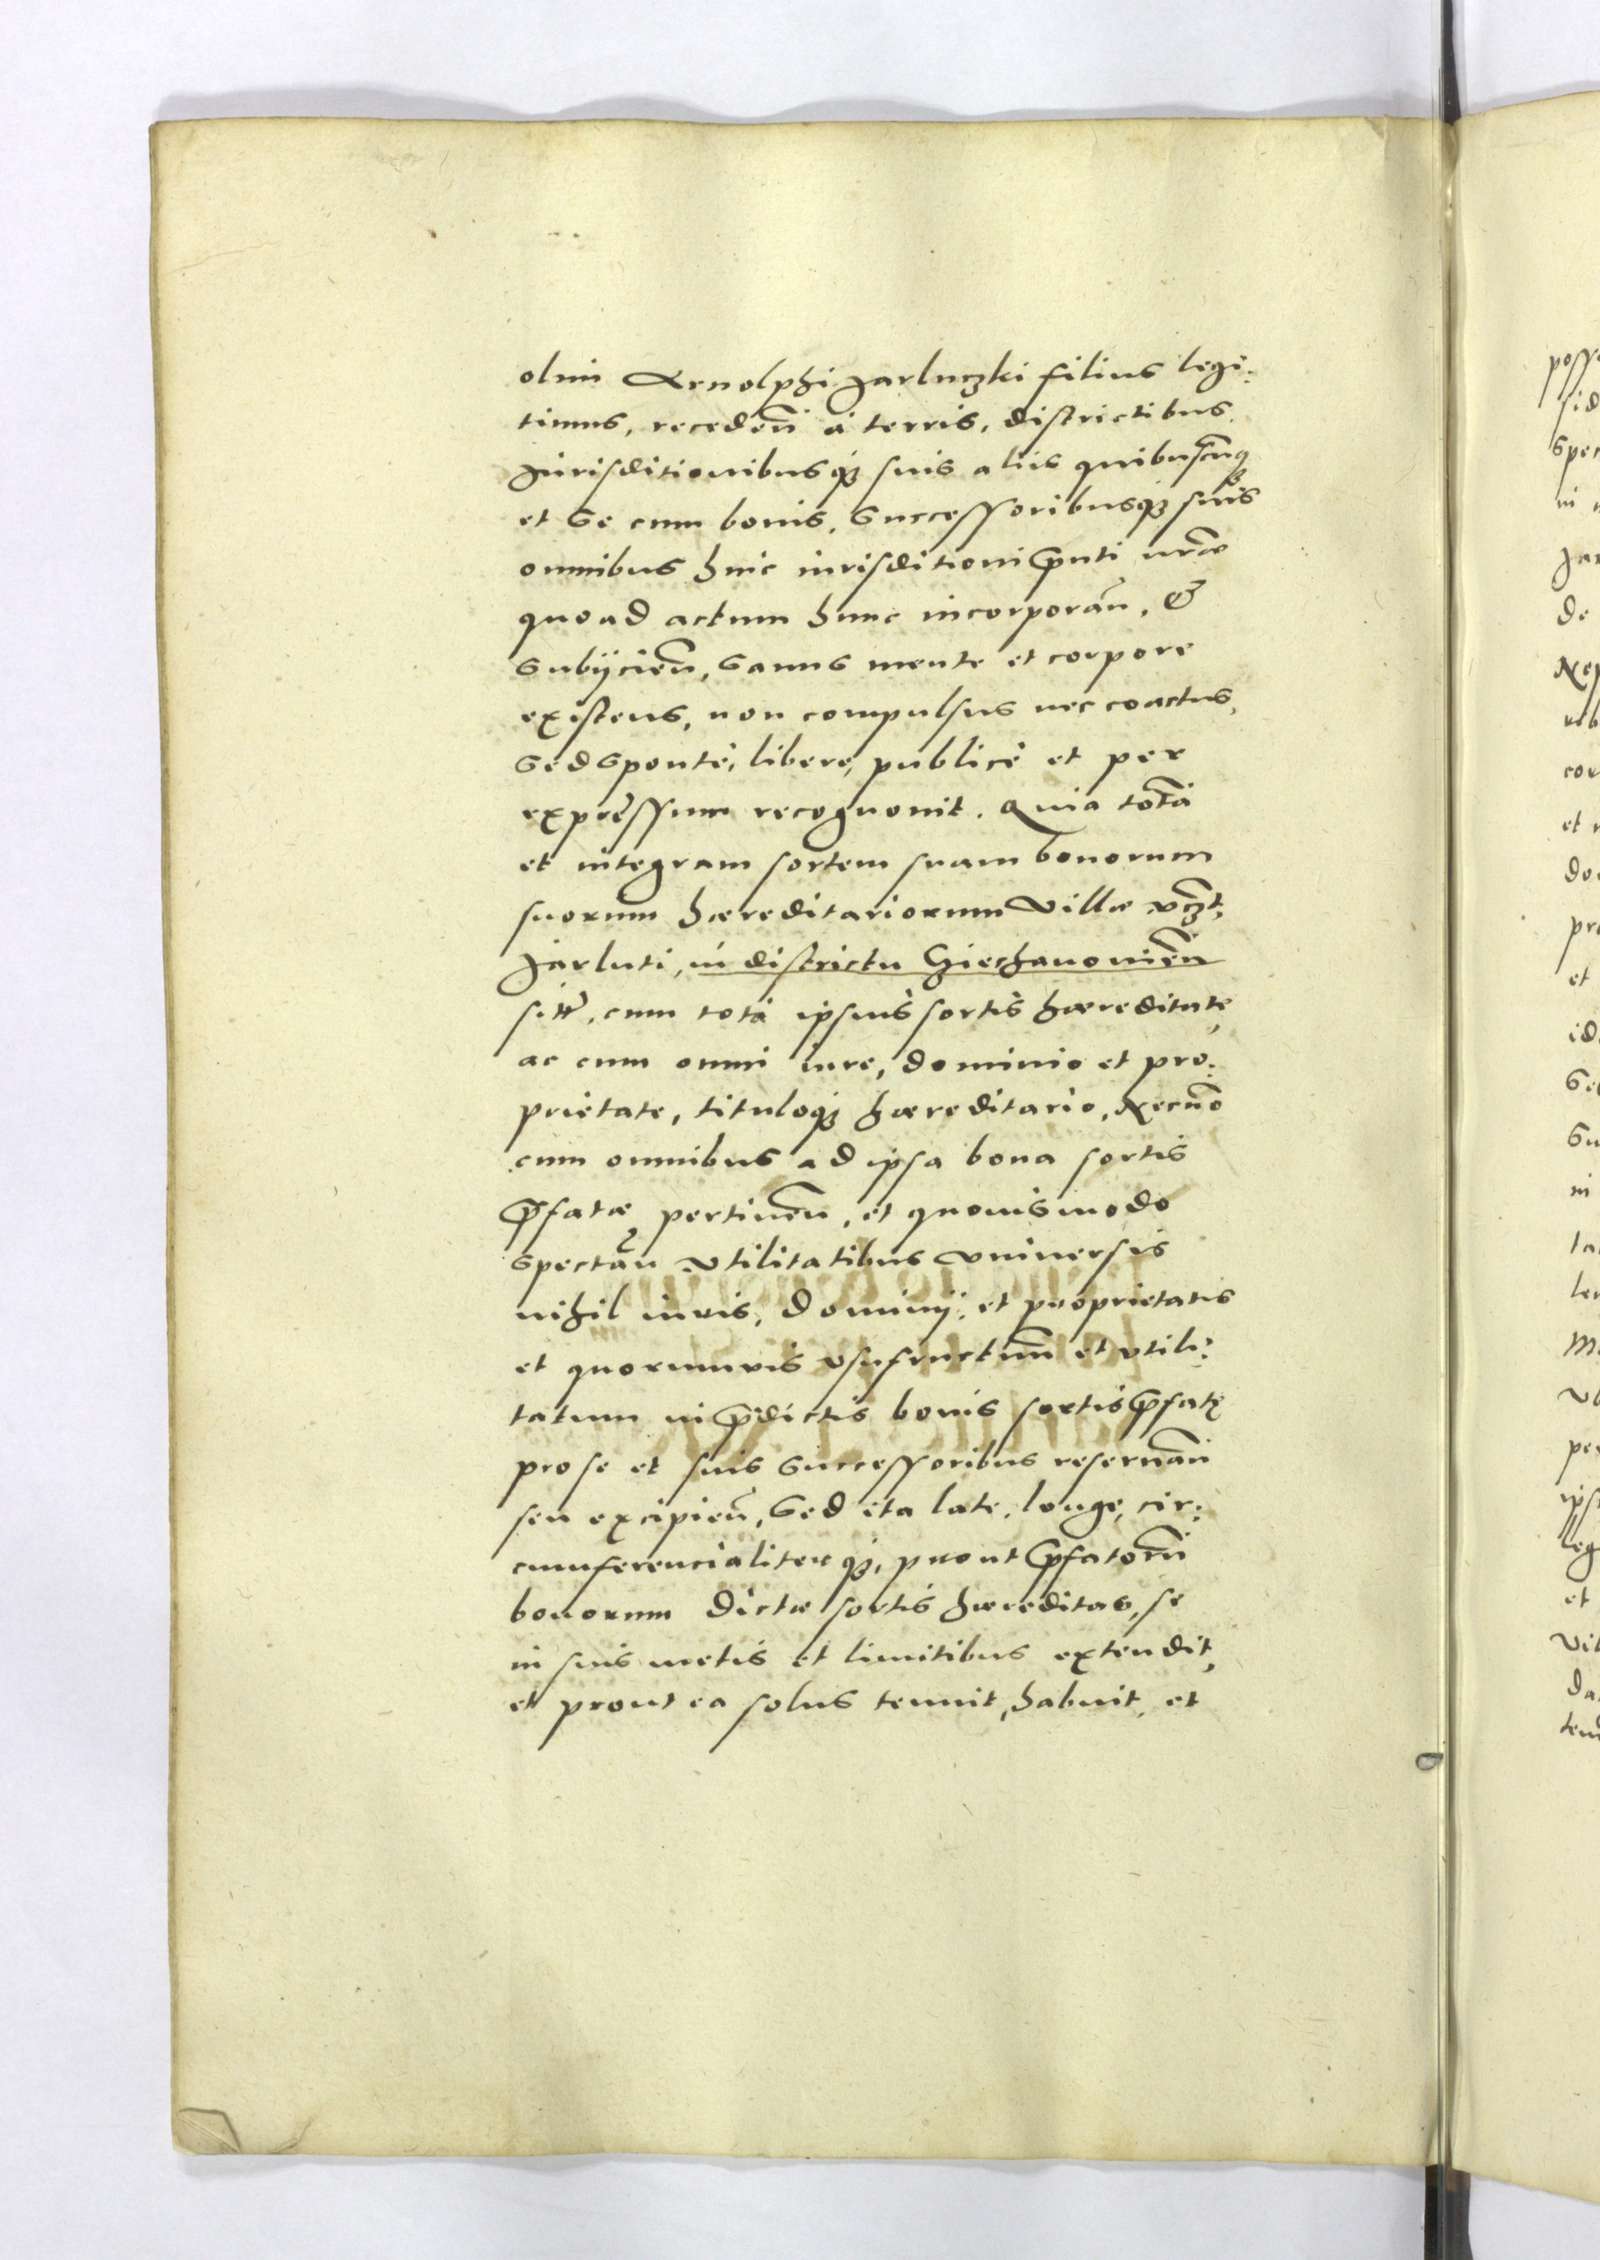 olim Arnolphi Jarluczki filius legi:
timus, receden̄ a terris, districtibus
Jurisditionibusq₃ suis aliis quibuscūq₃
et se cum bonis, successoribusq₃ suis
omnibus huic iurisditioni p̄nti nr̄æ
quoad actum hunc incorporan̄, &
subijcien̄, sanus mente et corpore
existens, non compulsus nec coactus,
sed sponte, libere, publicè et per
expressum recognouit. Quia totā
et integram sortem suam bonorum
suorum hæreditariorum Villæ vcz̄t,
Jarluti, in districtu Ciechanonien̄
sit̄, cum tota ipsius sortis hæreditate,
ac cum omni iure, dominio et pro:
prietate, tituloq₃ hæreditario, Necnō
cum omnibus ad ipsa bona sortis
p̄fatæ pertinen̄, et quouismodo
spectan̄ vtilitatibus vniuersis
nihil iuris, dominij, et proprietatis
et quorumuis vsufructuum̄ et vtili:
tatum in p̄dictis bonis sortis p̄fatę
pro se et suis successoribus reseruan̄
seu excipien̄, sed ita late, longe, cir:
cumferencialiterq₃, prout p̄fatorū
bonorum dictæ sortis hæreditas, se
in suis metis et limitibus extendit,
et prout ea solus tenuit, habuit, et